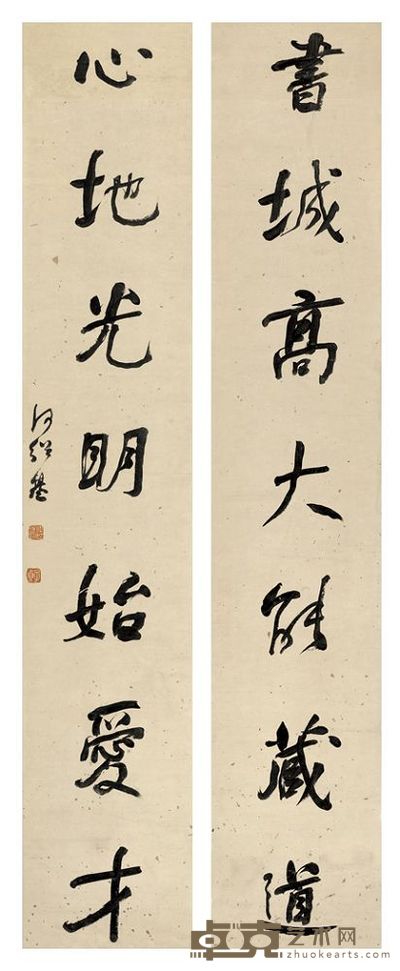 書城高大能藏道
心地光明始愛才
何紹基
卓克艺术网
www.zhuokearts.com